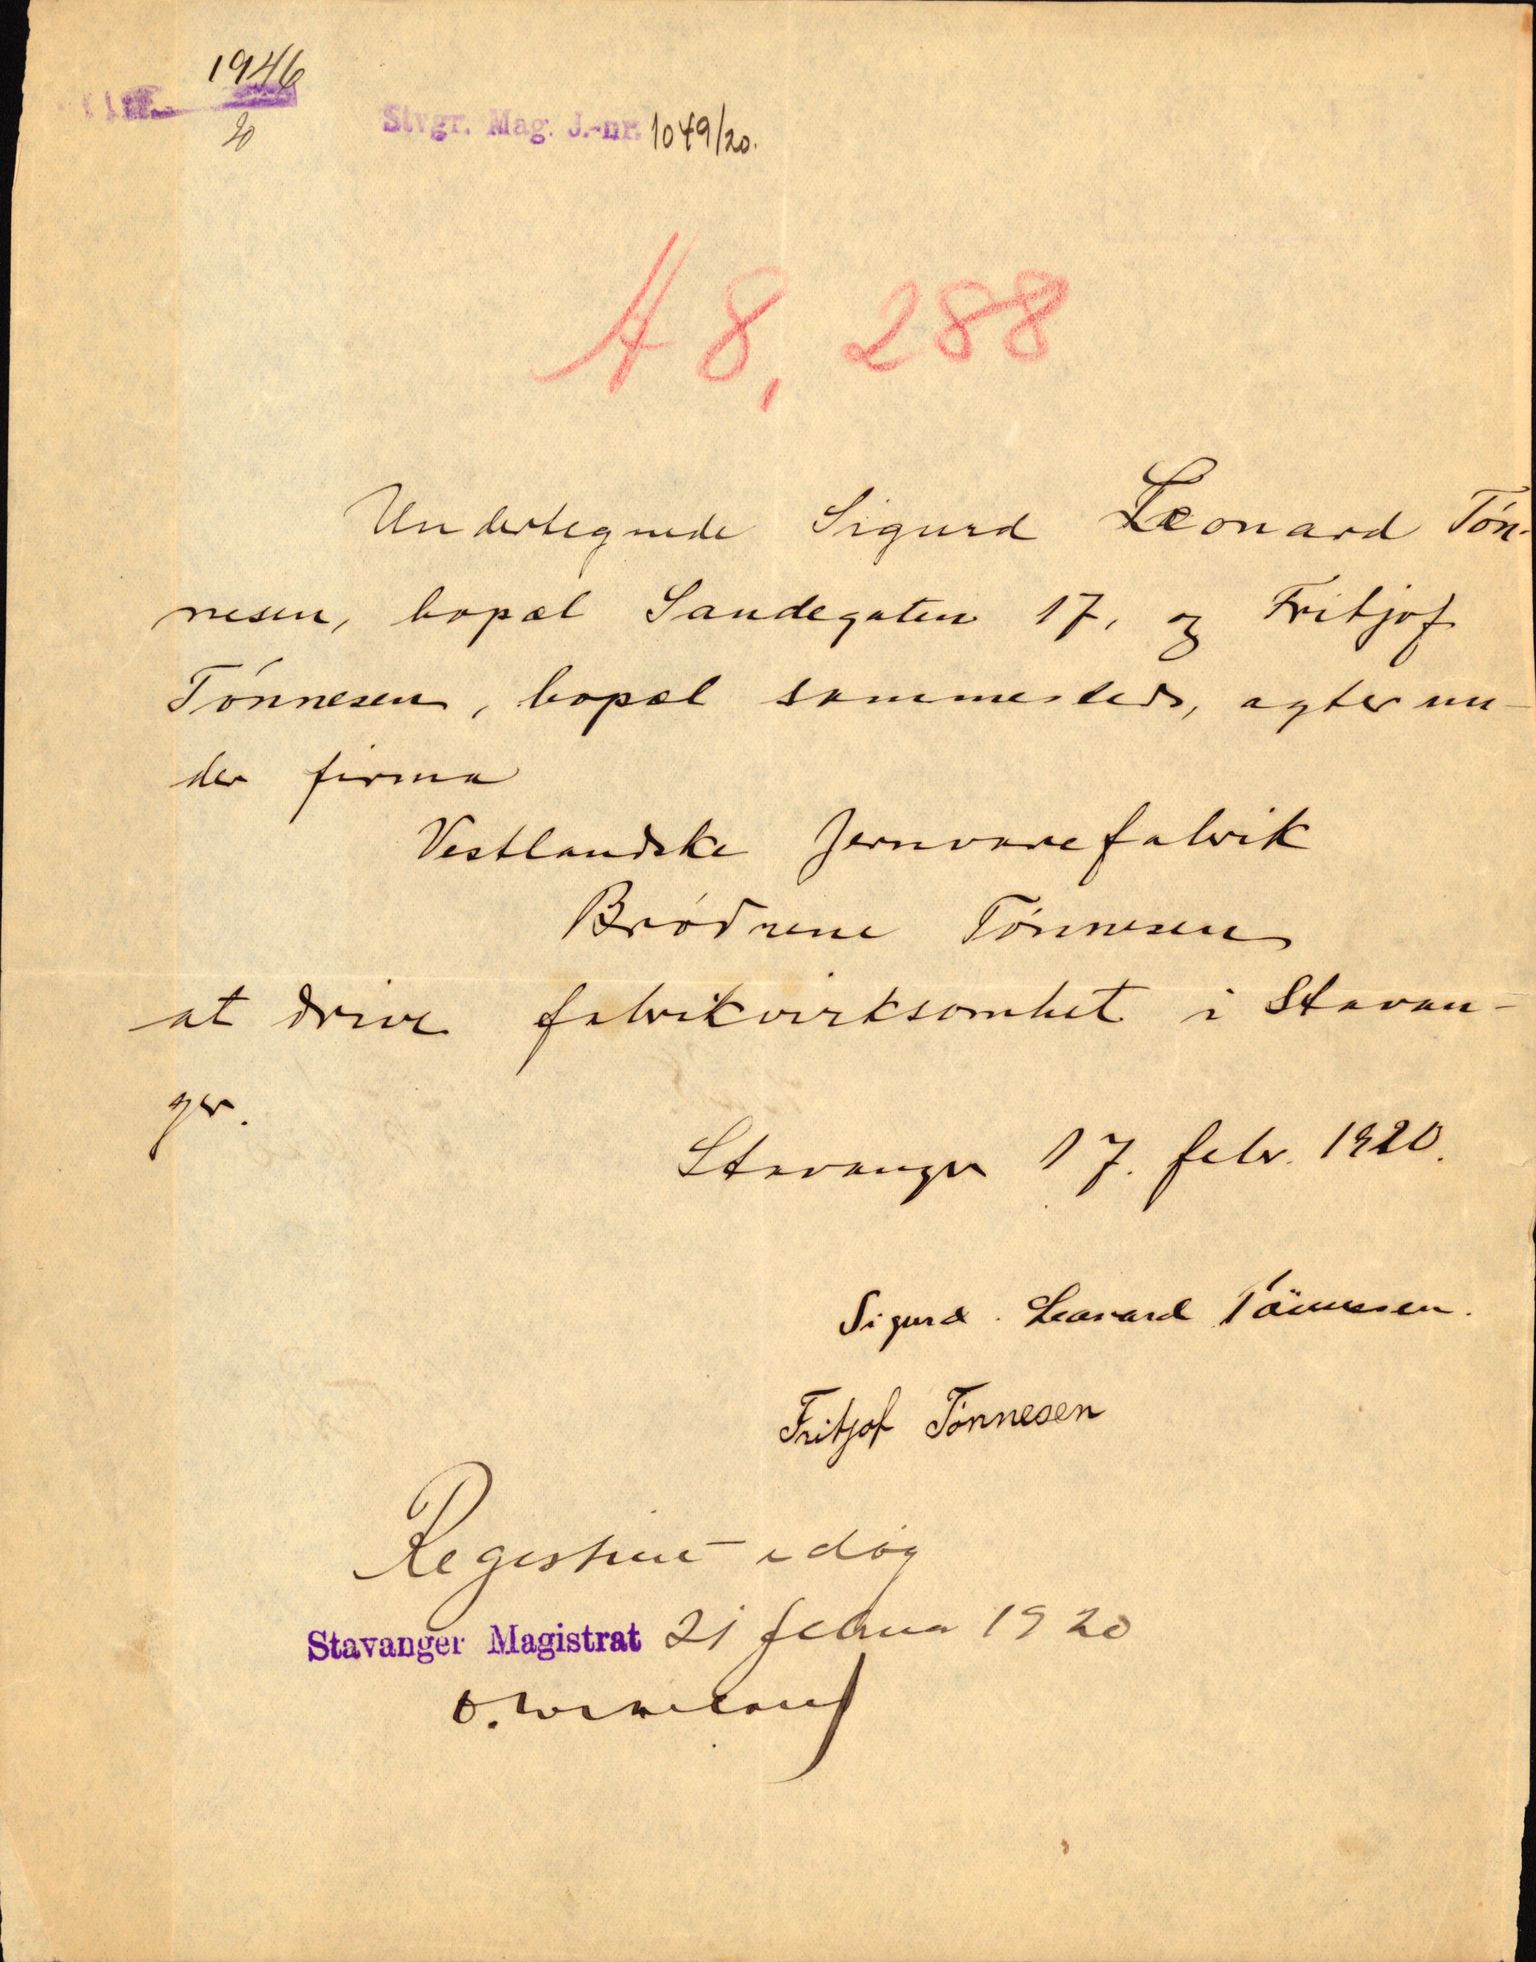 1946
20
Stvgr. Mag. J.-nr. 1049/20.
A 8, 288
Undertegnede Sigurd Leonard Tøn-
nesen, bopæl Sandegaten 17, og Fritjof
Tønnesen, bopæl sammesteds, agter un-
der firma
Vestlandske Jernvarefabrik
Brødrene Tønnesen
at drive fabrikvirksomhet i Stavan-
ger.
Stavanger 17. febr. 1920.
Sigurd Leonard Tönnesen.
Fritjof Tønnesen
Registrert idag
Stavanger Magistrat 21 februar 1920